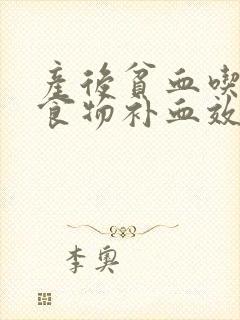 産後貧血喫
食物补血效
李奥